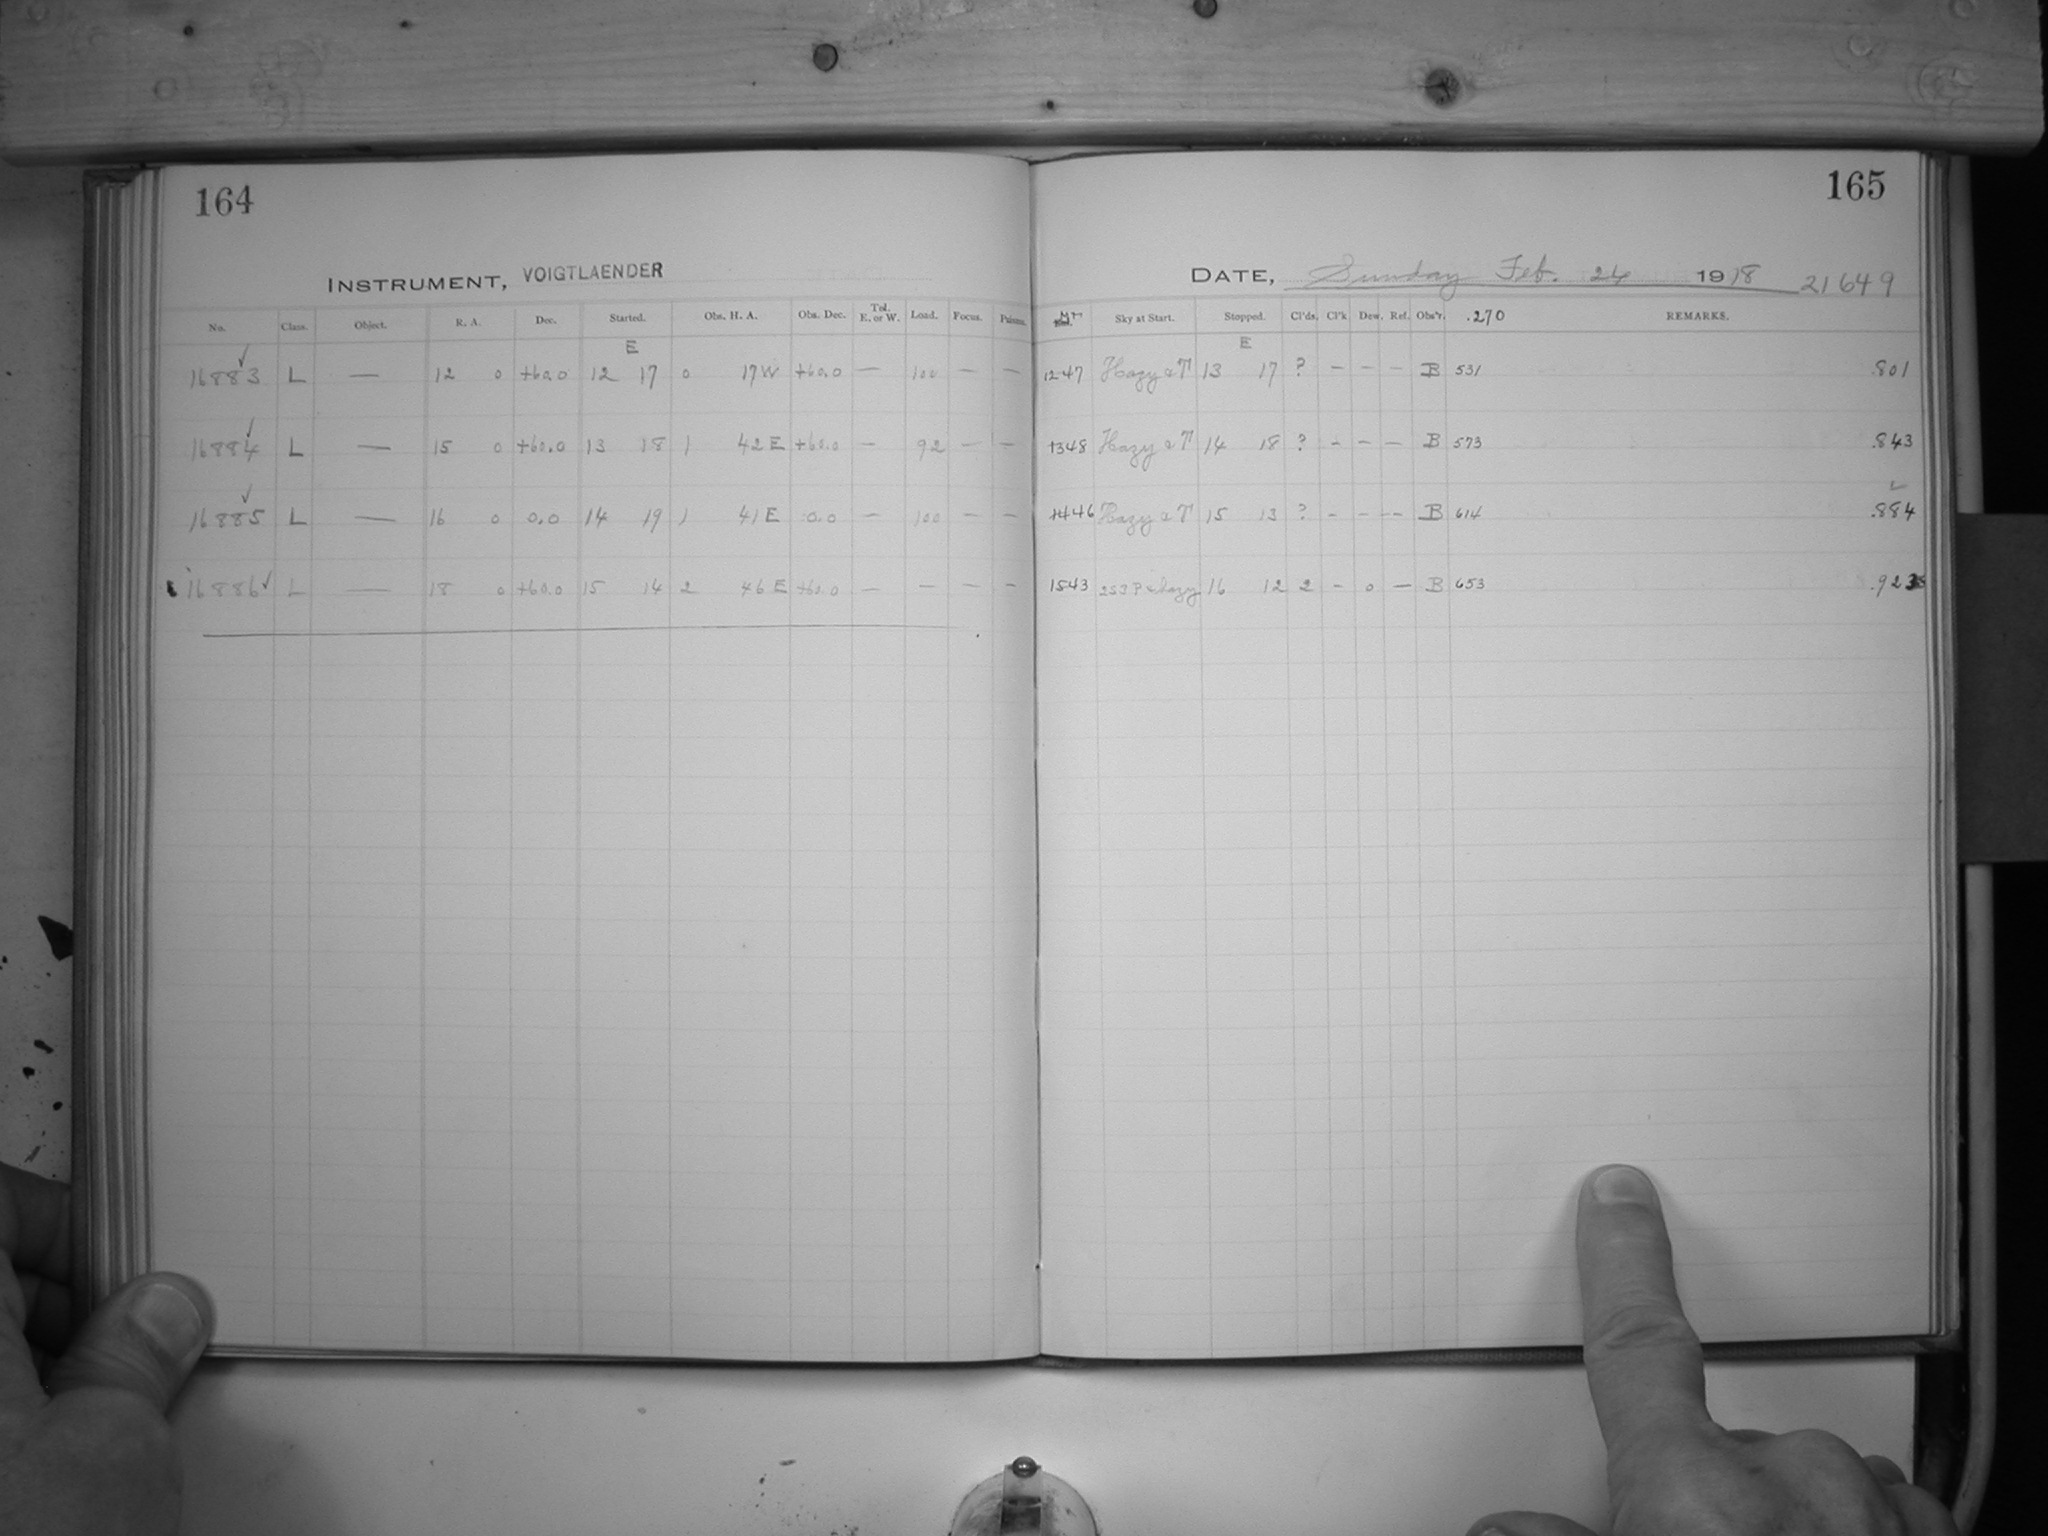 164
INSTRUMENT, VOIGTLAENDER
No. Class. Object. R. A. Dec. Started. Obs. H. A. Obs. Dec. Tel. E. or W. Load. Focus.
E
16883 L — 12 0 +60.0 12 17 0 17 W +60.0 — 100 — —
16884 L — 15 0 +60.0 13 18 1 42 E +60.0 — 92 — —
16885 L — 16 0 0.0 14 19 1 41 E 0.0 — 100 — —
16886 L — 18 0 +60.0 15 14 2 46 E +60.0 — — — —
165
DATE, Sunday Feb. 24 1918 21649
Sky at Start. Stopped. Cl'ds. Cl'k Dew. Ref. Obs'r. .270 REMARKS.
E
1247 Hazy & 13 17 ? — — — B 531 .801
1348 Hazy & 14 18 ? — — — B 573 .843
1446 Hazy & 15 13 ? — — — B 614 .884
1543 hazy 16 12 2 — 0 — B 653 .923